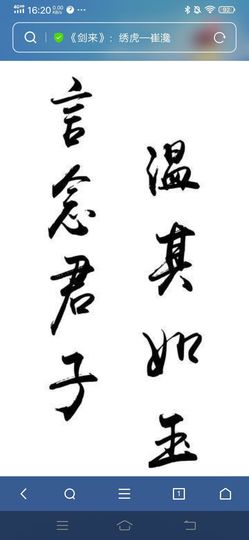 16:20 0.00 KB/s 92
《剑来》：绣虎—崔瀺
言念君子
温其如玉
1